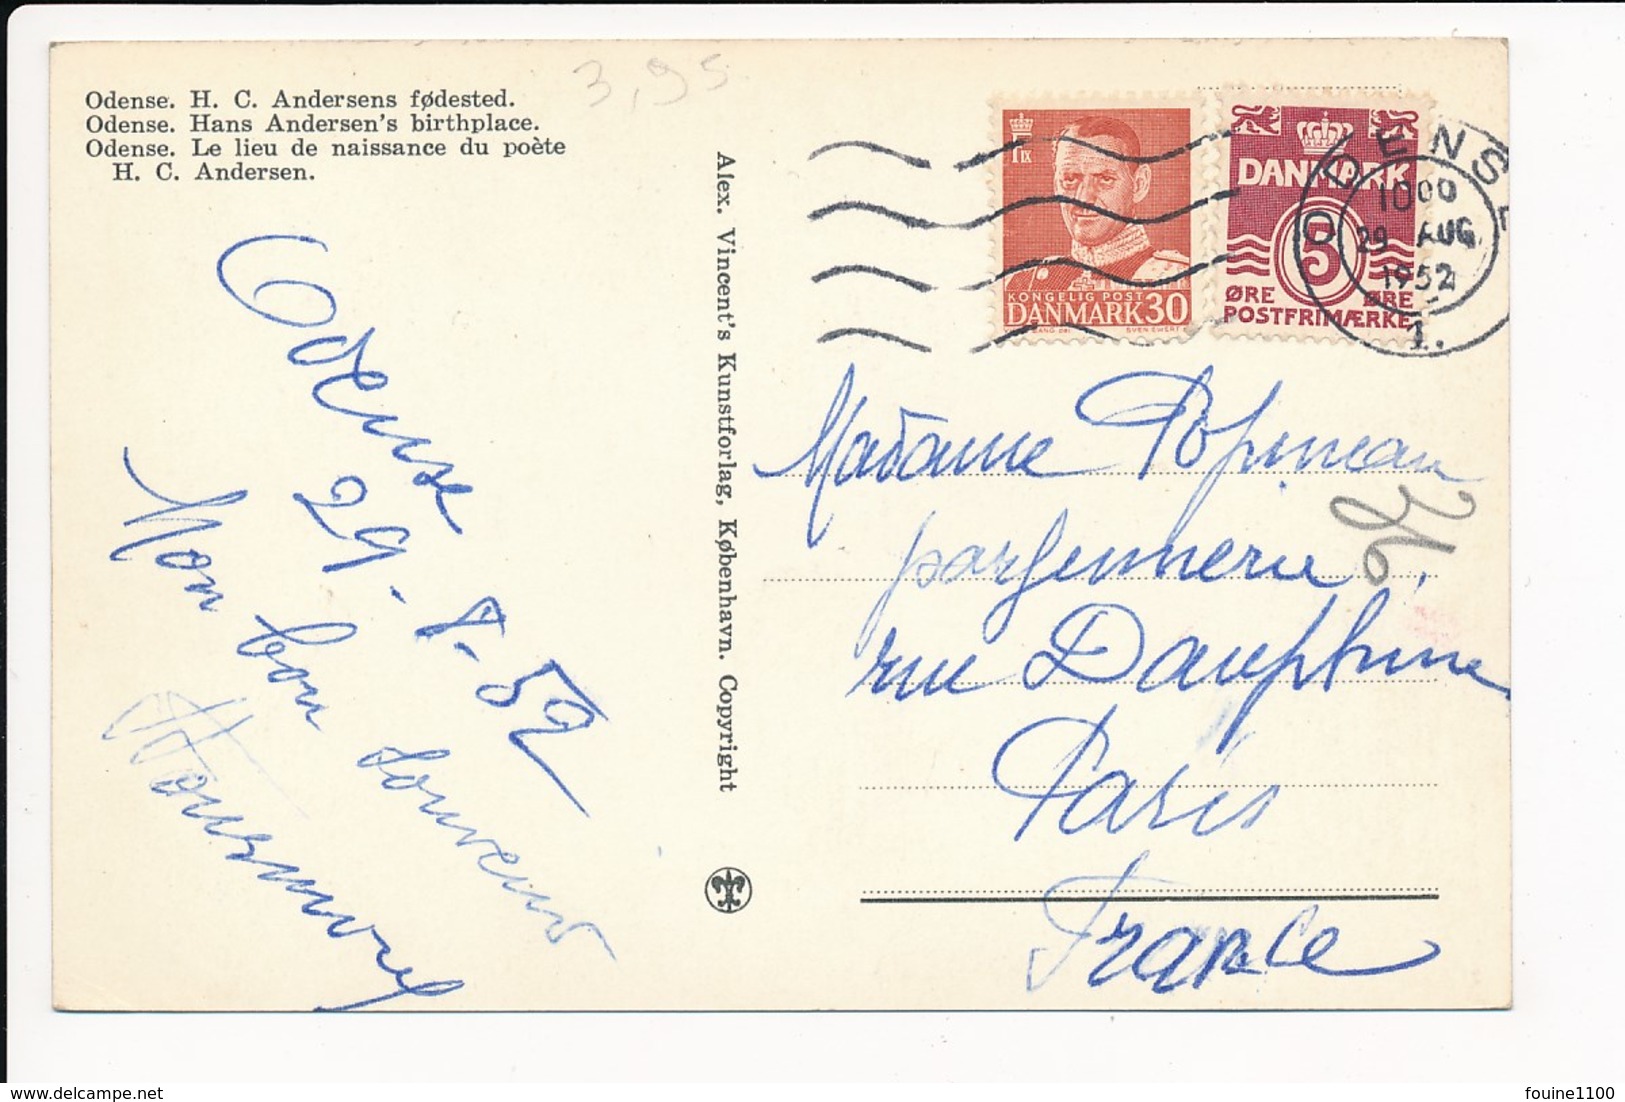 3,95
Odense. H. C. Andersens fødested.
Odense. Hans Andersen's birthplace.
Odense. Le lieu de naissance du poète
H. C. Andersen.
Odense
29-8-52
Mon bon souvenir
Alex. Vincent's Kunstforlag, København. Copyright
F IX
KONGELIG POST
DANMARK 30
SVEN EWERT
DANMARK
5
ØRE ØRE
POSTFRIMÆRKE
ODENSE
1000
29 AUG
1952
1.
Madame Popineau
parfumerie
rue Dauphine
Paris
France
delcampe.net
fouine1100